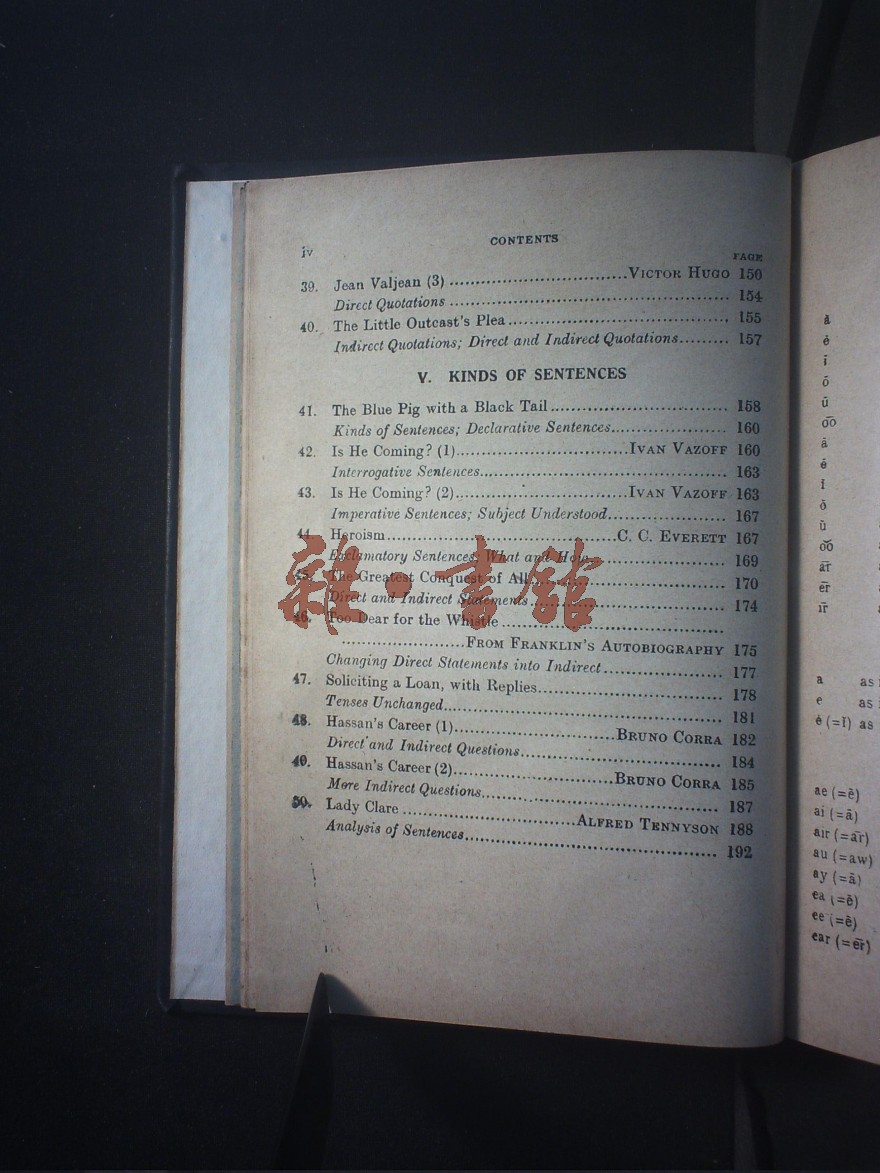 iv
CONTENTS
PAGE
39. Jean Valjean (3) ..............................Victor Hugo 150
Direct Quotations .............................................. 154
40. The Little Outcast's Plea..................................... 155
Indirect Quotations; Direct and Indirect Quotations......... 157
V. KINDS OF SENTENCES
41. The Blue Pig with a Black Tail.............................. 158
Kinds of Sentences; Declarative Sentences.................... 160
42. Is He Coming? (1).............................Ivan Vazoff 160
Interrogative Sentences.......................................... 163
43. Is He Coming? (2).............................Ivan Vazoff 163
Imperative Sentences; Subject Understood.................... 167
44. Heroism.......................................C. C. Everett 167
Exclamatory Sentences; What and How....................... 169
45. The Greatest Conquest of All................................. 170
Direct and Indirect Statements................................. 174
46. Too Dear for the Whistle......................................
.....................From Franklin's Autobiography 175
Changing Direct Statements into Indirect.................... 177
47. Soliciting a Loan, with Replies............................... 178
Tenses Unchanged............................................... 181
48. Hassan's Career (1)...........................Bruno Corra 182
Direct and Indirect Questions.................................. 184
49. Hassan's Career (2)...........................Bruno Corra 185
More Indirect Questions........................................ 187
50. Lady Clare .............................Alfred Tennyson 188
Analysis of Sentences.......................................... 192
雜·書館
ā
ē
ī
ō
ū
o͞o
a as
e as
ė (=ĭ) as
ae (=ē)
ai (=ā)
air (=âr)
au (=aw)
ay (=ā)
ea (=ē)
ee (=ē)
ear (=ēr)